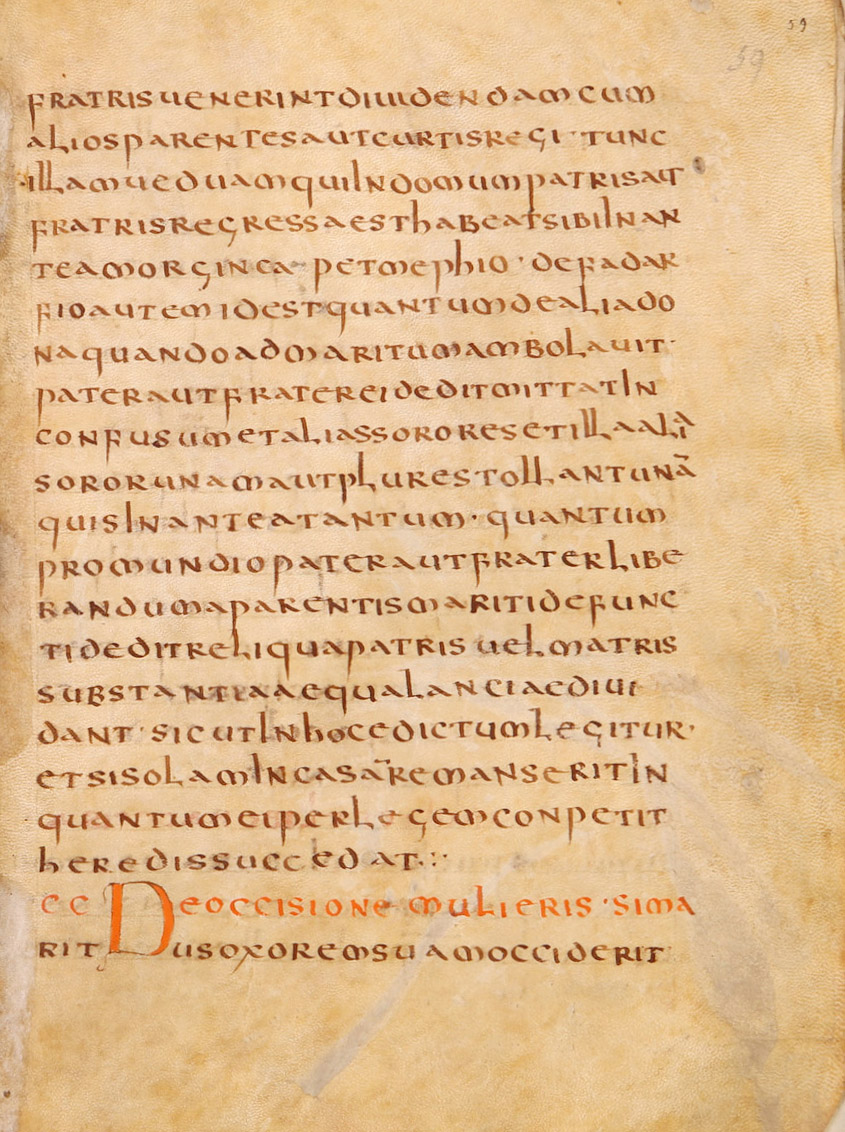 59
59
fratris uenerint diuidendam cum
alios parentes aut curtis regi · tunc
illam uedua m qui In domum patris aut
fratris regressa est habeat sibi In an
te amorginca · pet mephio · de fadar
fio autem id est quantum de alia do
na quando ad maritum ambolauit ·
pater aut frater ei dedit mittat In
confusum et alias sorores et illa ali
soror una m aut plures tollant unā
quis In ante a tantum · quantum
pro mundio pater aut frater libe
randum a parentis mariti defunc
ti dedit reliqua patris uel matris
substantia aequa lancia ediui
dant · sicut In hoc edictum legitur ·
et si sola m In casa remanserit In
quantum ei per legem conpetit
heredis succedat · : ·
CC De occisione mulieris · Si ma
ritus oxorem suam occiderit